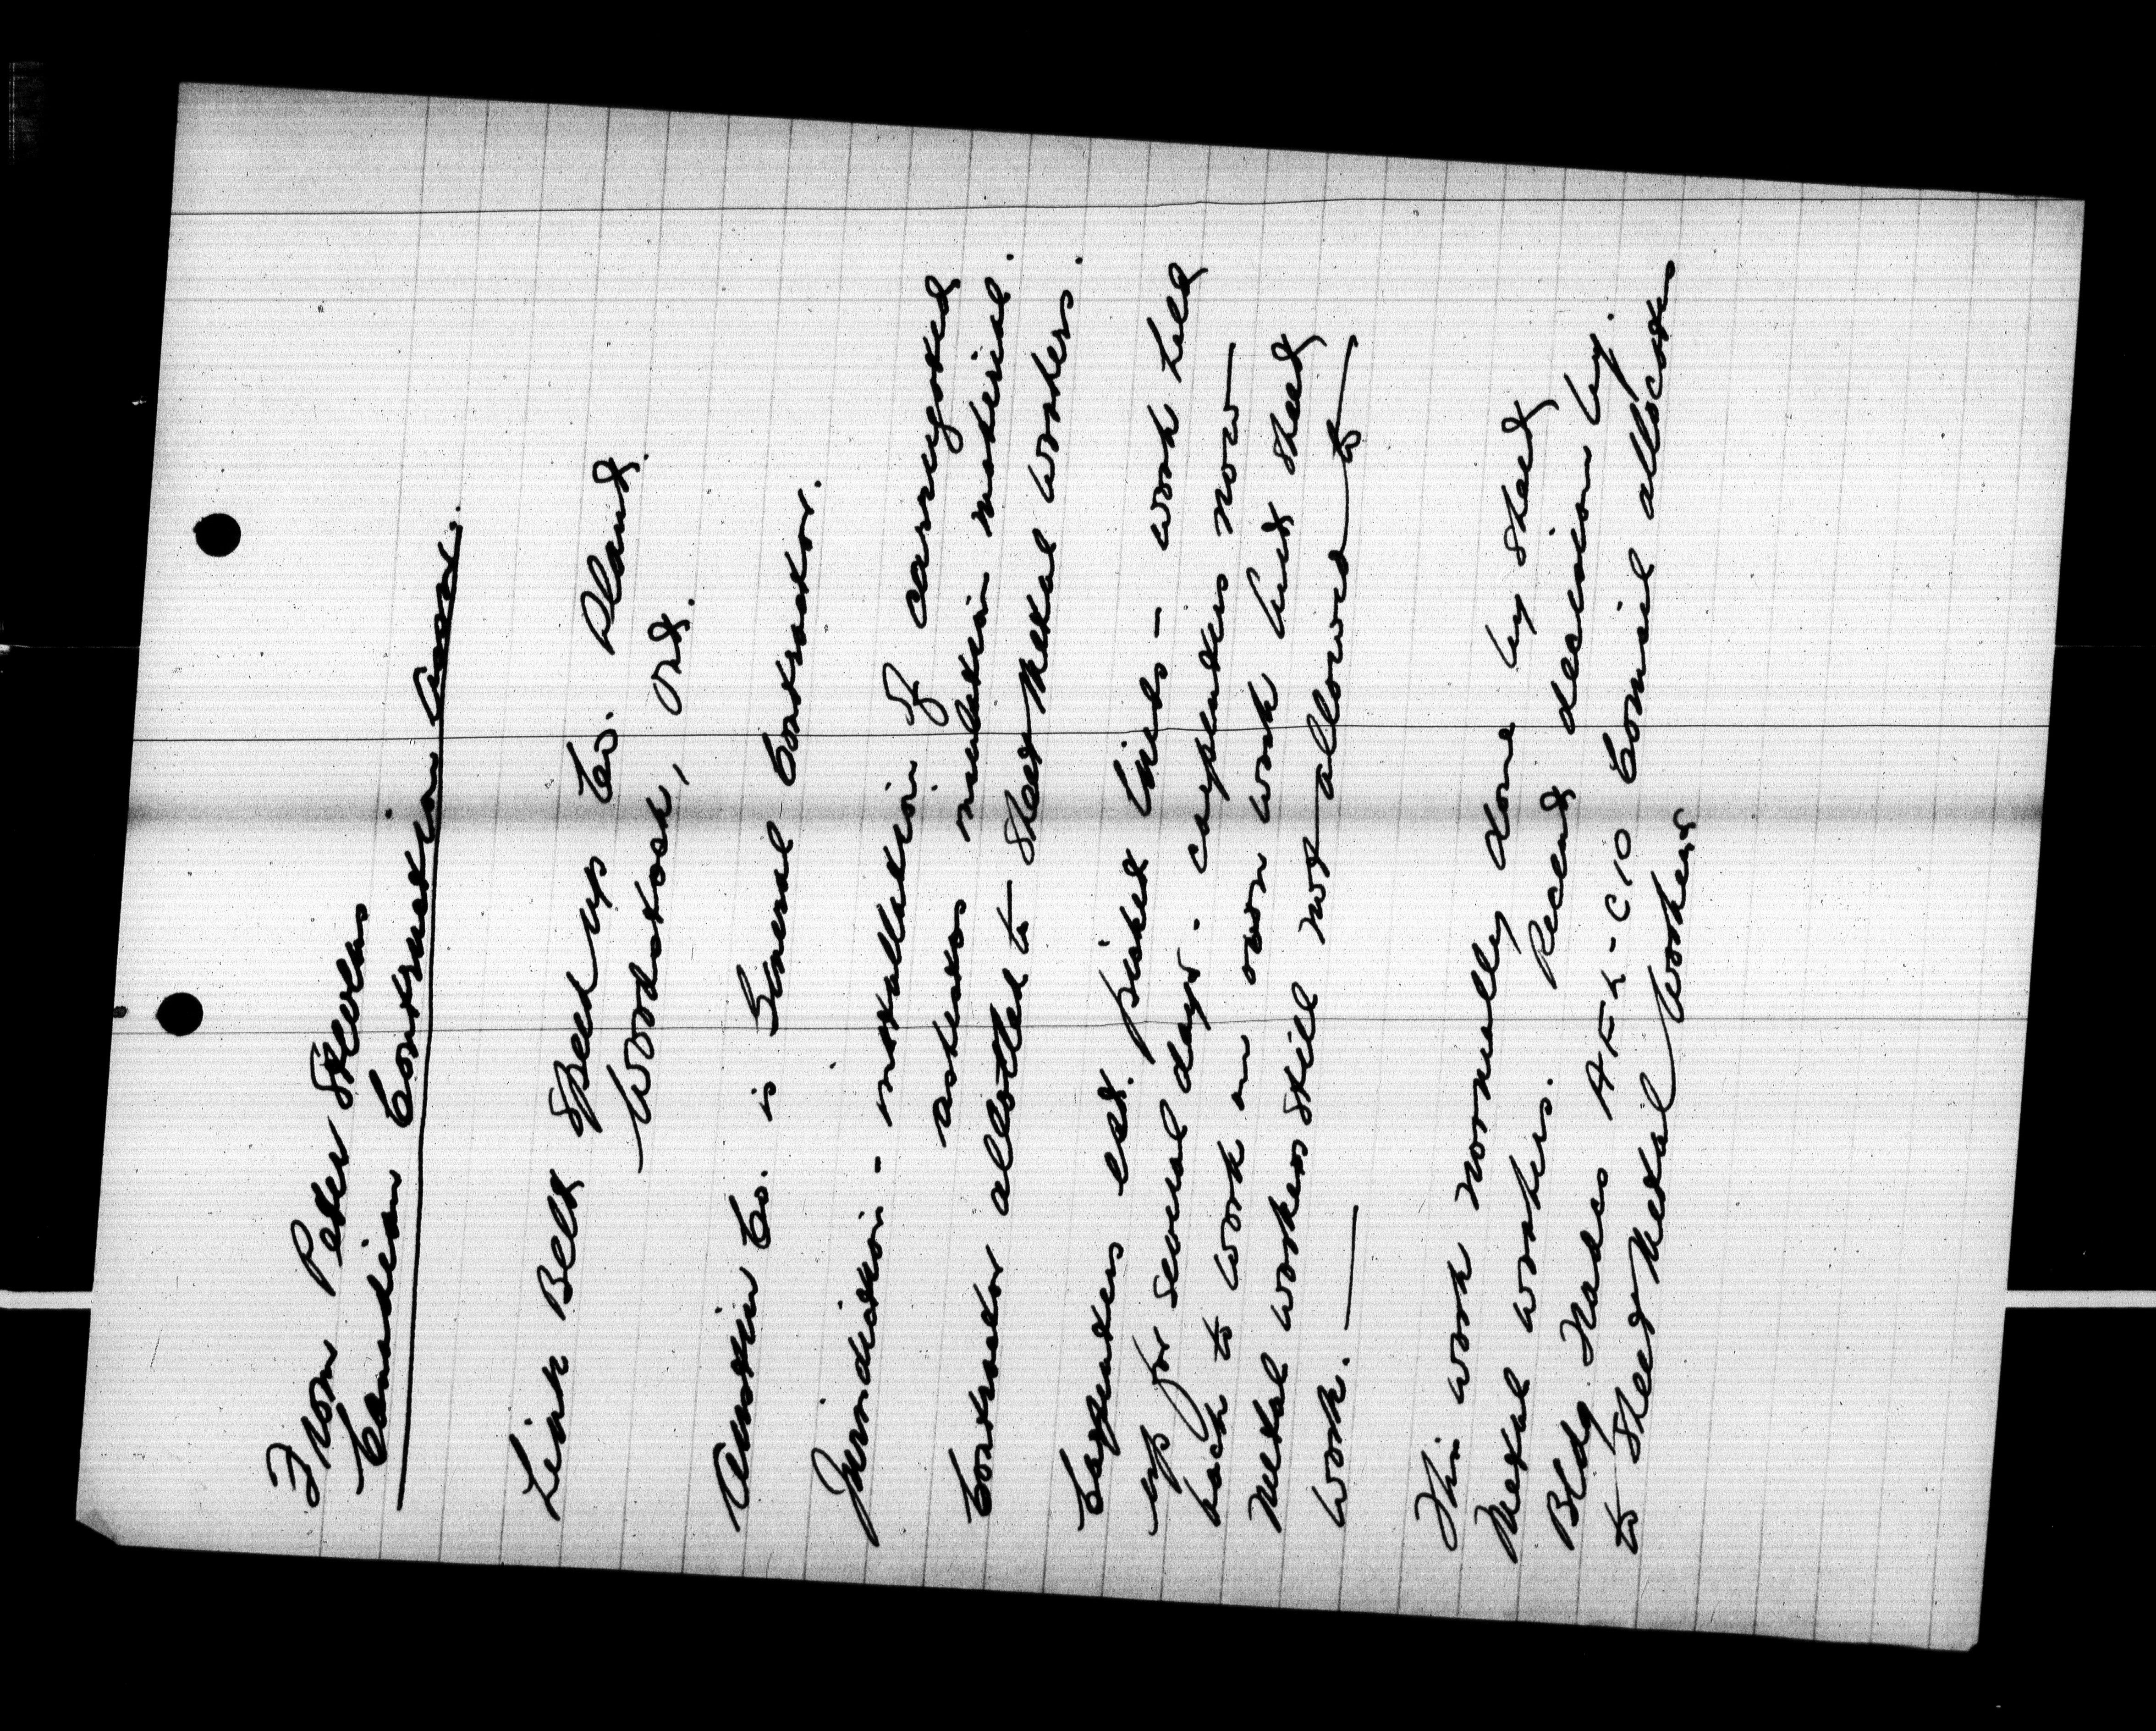 From Peter Stevens
Canadian Construction Assn.
Link Belt Speed up Co. Plant
Woodstock, Ont.
Austin Co. is General Contractor.
Jurisdiction - installation of corrugated
asbestos insulation material.
Contractor allotted to Sheet Metal workers.
Carpenters est. picket lines - work held
up for several days. Carpenters now
back to work on own work but sheet
metal workers still not allowed to
work.
This work normally done by sheet
metal workers. Recent decision by
Bldg. Trades AFL-CIO Council allocates
to Sheet Metal Workers